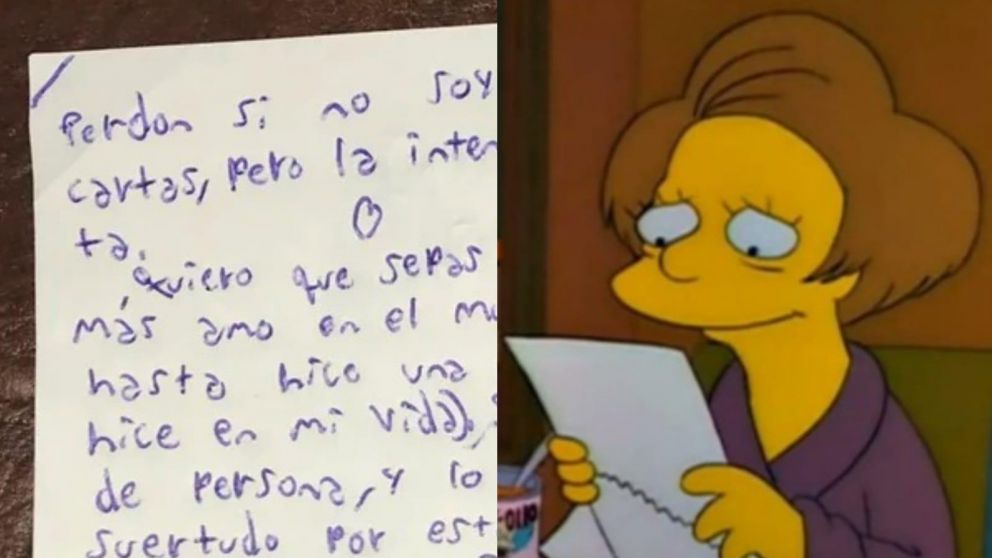 Perdon si no soy
cartas, pero la inten
ta.
quiero que sepas
más amo en el mu
hasta hice una
hice en mi vida),
de persona, y lo
suertudo por est